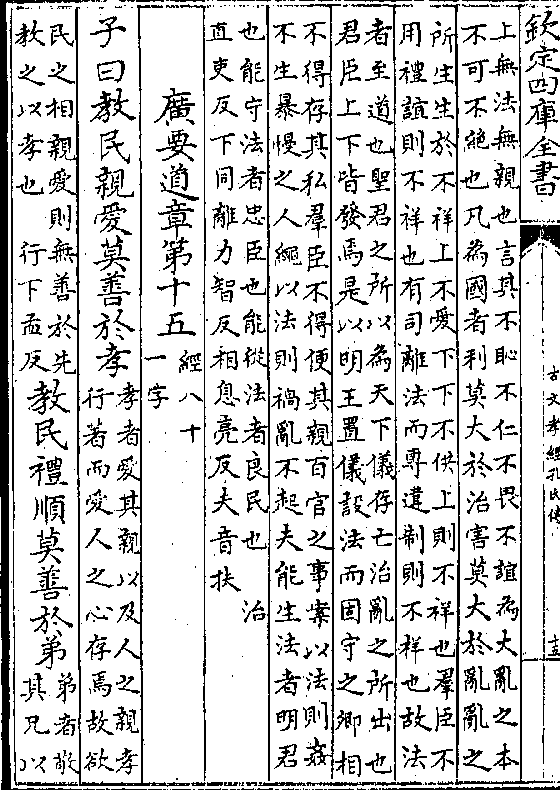 欽定四庫全書
古文孝經孔氏傳
上無法無親也言其不恥不仁不畏不誼為大亂之本
不可不絶也凡為國者利莫大於治害莫大於亂亂之
所生生於不祥上不愛下下不供上則不祥也羣臣不
用禮誼則不祥也有司離法而專違制則不祥也故法
者至道也聖君之所以為天下儀存亡治亂之所出也
君臣上下皆發焉是以明王置儀設法而固守之卿相
不得存其私羣臣不得便其親百官之事案以法則姦
不生暴慢之人繩以法則禍亂不起夫能生法者明君
也能守法者忠臣也能從法者良民也 治
直吏反下同離力智反相息亮反夫音扶
廣要道章第十五
經八十
一字
子曰教民親愛莫善於孝
孝者愛其親以及人之親孝
行著而愛人之心存焉故欲
民之相親愛則無善於先
教之以孝也 行下孟反
教民禮順莫善於弟
弟者敬
其兄以